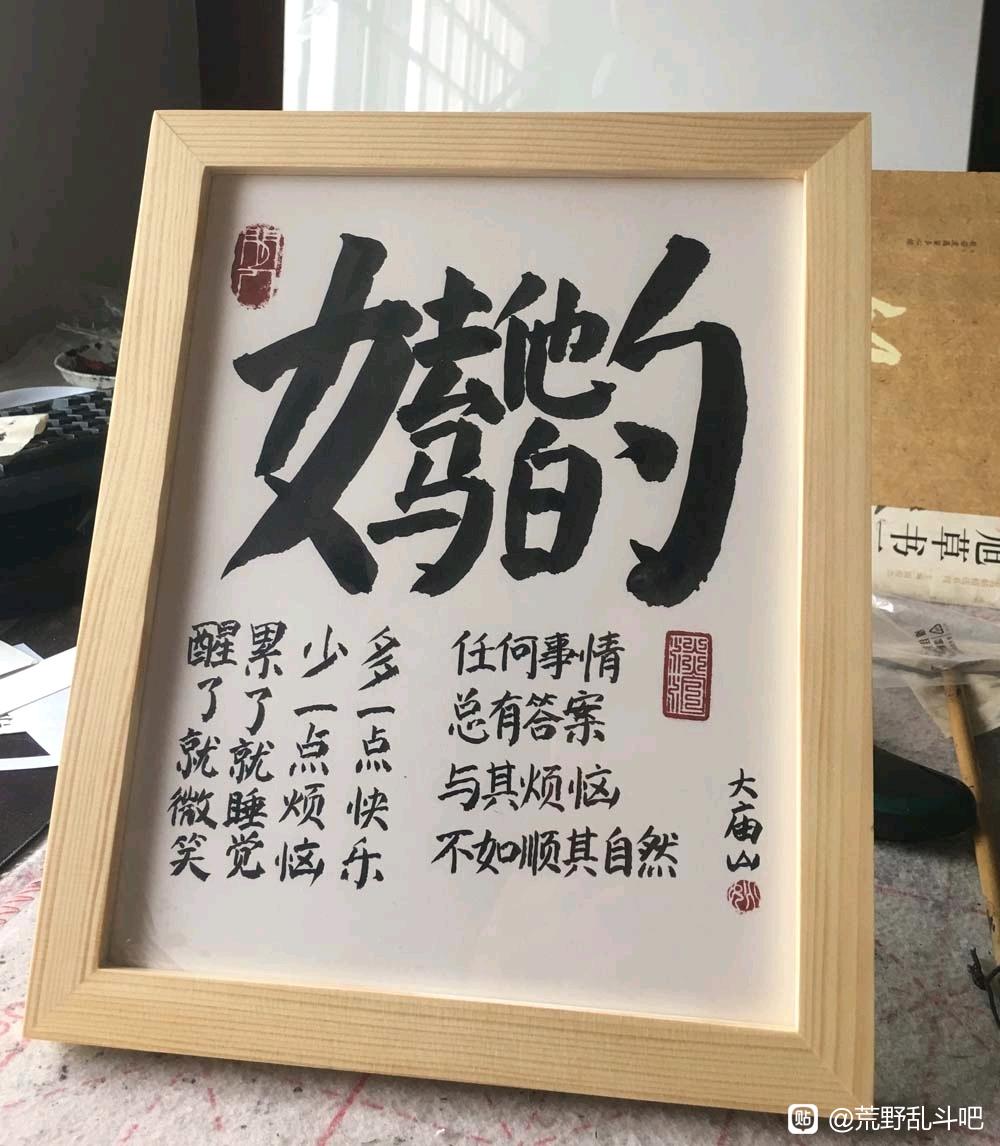 去他妈的
任何事情
总有答案
与其烦恼
不如顺其自然
多一点快乐
少一点烦恼
累了就睡觉
醒了就微笑
大庙山
旭草书
贴 @荒野乱斗吧